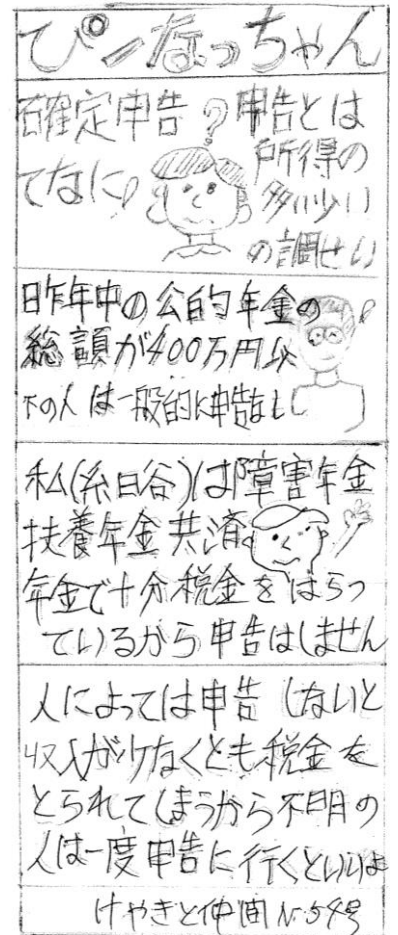 ぴーなっちゃん
確定申告？
てなに？
申告とは
所得の
多い少い
の調せい
昨年中の公的年金の
総額が400万円以
下の人は一般的に申告なし
私(糸白谷)は障害年金
扶養年金共済
年金で十分税金をはらっ
ているから申告はしません
人によっては申告しないと
収入が少なくとも税金を
とられてしまうから不明の
人は一度申告に行くといいよ
けやきと仲間 No 54号